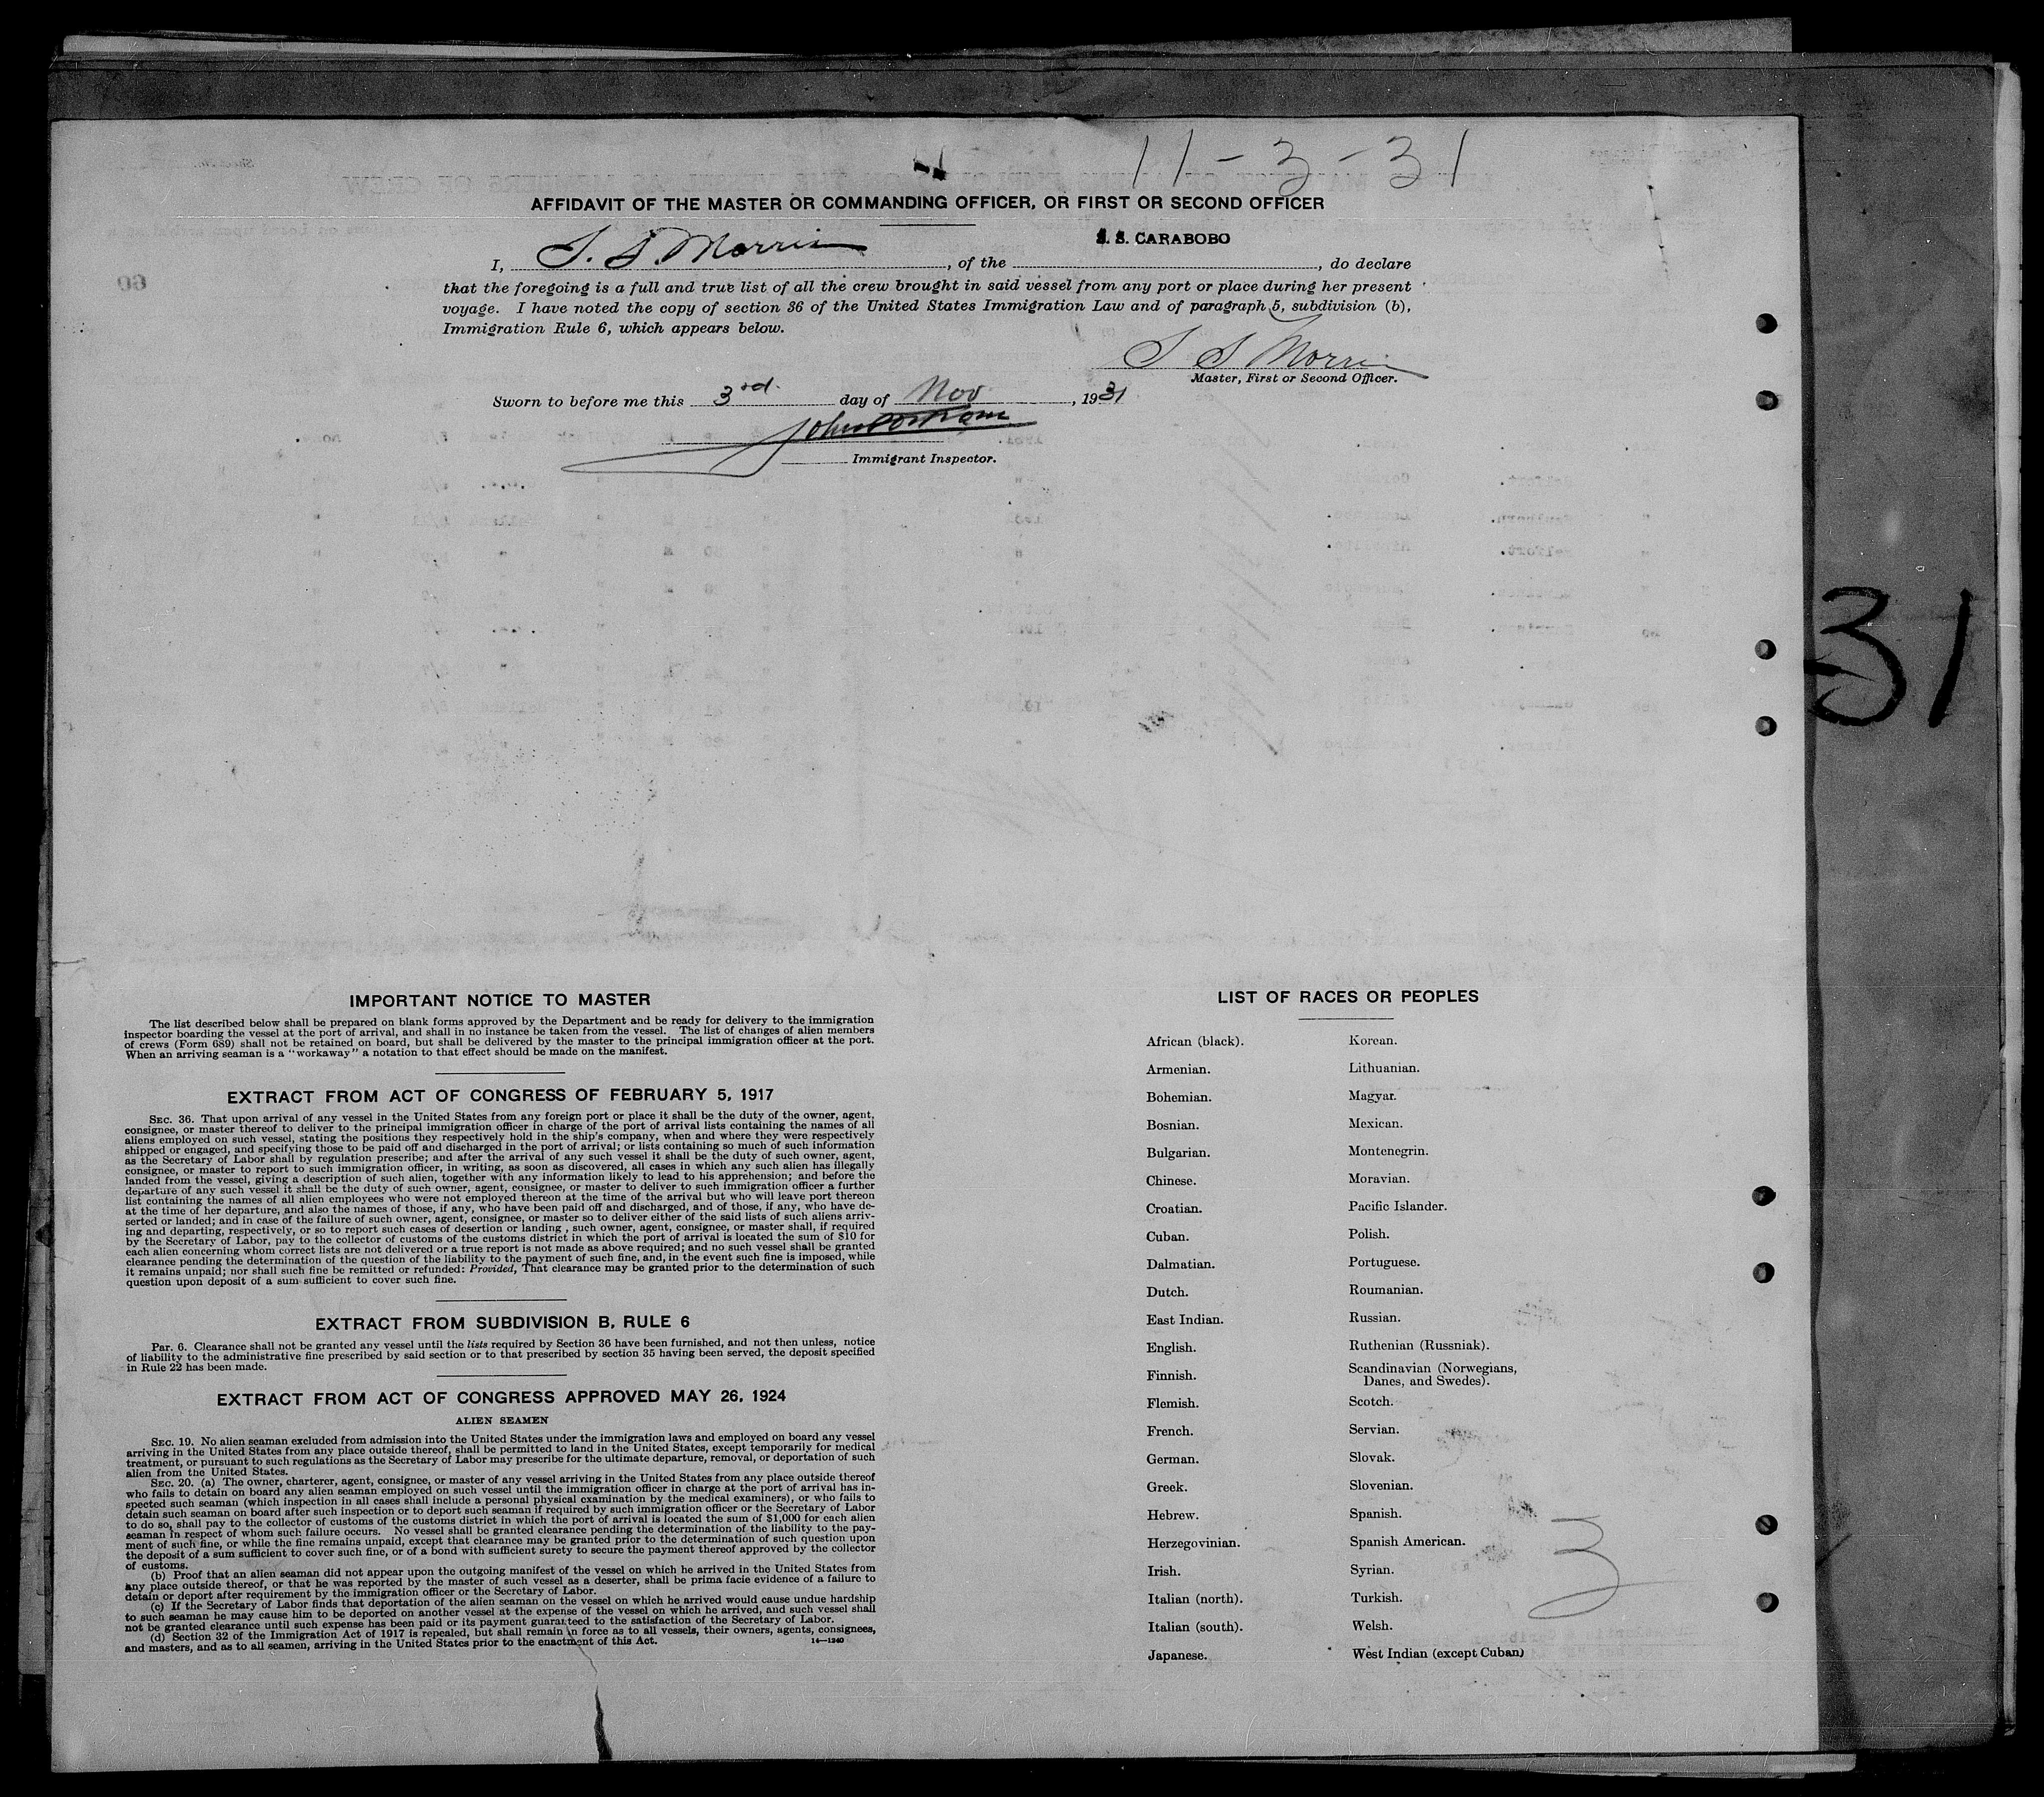 11-3-31
AFFIDAVIT OF THE MASTER OR COMMANDING OFFICER, OR FIRST OR SECOND OFFICER
S. S. CARABOBO
I, Morris, of the , do declare
that the foregoing is a full and true list of all the crew brought in said vessel from any port or place during her present
voyage. I have noted the copy of section 36 of the United States Immigration Law and of paragraph 5, subdivision (b),
Immigration Rule 6, which appears below.
Morris
Master, First or Second Officer.
Sworn to before me this 3rd day of Nov, 1931
John
Immigrant Inspector.
31
IMPORTANT NOTICE TO MASTER
The list described below shall be prepared on blank forms approved by the Department and be ready for delivery to the immigration
inspector boarding the vessel at the port of arrival, and shall in no instance be taken from the vessel. The list of changes of alien members
of crews (Form 689) shall not be retained on board, but shall be delivered by the master to the principal immigration officer at the port.
When an arriving seaman is a "workaway" a notation to that effect should be made on the manifest.
EXTRACT FROM ACT OF CONGRESS OF FEBRUARY 5, 1917
SEC. 36. That upon arrival of any vessel in the United States from any foreign port or place it shall be the duty of the owner, agent,
consignee, or master thereof to deliver to the principal immigration officer in charge of the port of arrival lists containing the names of all
aliens employed on such vessel, stating the positions they respectively hold in the ship's company, when and where they were respectively
shipped or engaged, and specifying those to be paid off and discharged in the port of arrival; or lists containing so much of such information
as the Secretary of Labor shall by regulation prescribe; and after the arrival of any such vessel it shall be the duty of such owner, agent,
consignee, or master to report to such immigration officer, in writing, as soon as discovered, all cases in which any such alien has illegally
landed from the vessel, giving a description of such alien, together with any information likely to lead to his apprehension; and before the
departure of any such vessel it shall be the duty of such owner, agent, consignee, or master to deliver to such immigration officer a further
list containing the names of all alien employees who were not employed thereon at the time of the arrival but who will leave port thereon
at the time of her departure, and also the names of those, if any, who have been paid off and discharged, and of those, if any, who have de-
serted or landed; and in case of the failure of such owner, agent, consignee, or master so to deliver either of the said lists of such aliens arriv-
ing and departing, respectively, or so to report such cases of desertion or landing, such owner, agent, consignee, or master shall, if required
by the Secretary of Labor, pay to the collector of customs of the customs district in which the port of arrival is located the sum of $10 for
each alien concerning whom correct lists are not delivered or a true report is not made as above required; and no such vessel shall be granted
clearance pending the determination of the question of the liability to the payment of such fine, and, in the event such fine is imposed, while
it remains unpaid; nor shall such fine be remitted or refunded: Provided, That clearance may be granted prior to the determination of such
question upon deposit of a sum sufficient to cover such fine.
EXTRACT FROM SUBDIVISION B, RULE 6
Par. 6. Clearance shall not be granted any vessel until the lists required by Section 36 have been furnished, and not then unless, notice
of liability to the administrative fine prescribed by said section or to that prescribed by section 35 having been served, the deposit specified
in Rule 22 has been made.
EXTRACT FROM ACT OF CONGRESS APPROVED MAY 26, 1924
ALIEN SEAMEN
SEC. 19. No alien seaman excluded from admission into the United States under the immigration laws and employed on board any vessel
arriving in the United States from any place outside thereof, shall be permitted to land in the United States, except temporarily for medical
treatment, or pursuant to such regulations as the Secretary of Labor may prescribe for the ultimate departure, removal, or deportation of such
alien from the United States.
SEC. 20. (a) The owner, charterer, agent, consignee, or master of any vessel arriving in the United States from any place outside thereof
who fails to detain on board any alien seaman employed on such vessel until the immigration officer in charge at the port of arrival has in-
spected such seaman (which inspection in all cases shall include a personal physical examination by the medical examiners), or who fails to
detain such seaman on board after such inspection or to deport such seaman if required by such immigration officer or the Secretary of Labor
to do so, shall pay to the collector of customs of the customs district in which the port of arrival is located the sum of $1,000 for each alien
seaman in respect of whom such failure occurs. No vessel shall be granted clearance pending the determination of the liability to the pay-
ment of such fine, or while the fine remains unpaid, except that clearance may be granted prior to the determination of such question upon
the deposit of a sum sufficient to cover such fine, or of a bond with sufficient surety to secure the payment thereof approved by the collector
of customs.
(b) Proof that an alien seaman did not appear upon the outgoing manifest of the vessel on which he arrived in the United States from
any place outside thereof, or that he was reported by the master of such vessel as a deserter, shall be prima facie evidence of a failure to
detain or deport after requirement by the immigration officer or the Secretary of Labor.
(c) If the Secretary of Labor finds that deportation of the alien seaman on the vessel on which he arrived would cause undue hardship
to such seaman he may cause him to be deported on another vessel at the expense of the vessel on which he arrived, and such vessel shall
not be granted clearance until such expense has been paid or its payment guaranteed to the satisfaction of the Secretary of Labor.
(d) Section 32 of the Immigration Act of 1917 is repealed, but shall remain in force as to all vessels, their owners, agents, consignees,
and masters, and as to all seamen, arriving in the United States prior to the enactment of this Act.
14—1240
LIST OF RACES OR PEOPLES
African (black).
Armenian.
Bohemian.
Bosnian.
Bulgarian.
Chinese.
Croatian.
Cuban.
Dalmatian.
Dutch.
East Indian.
English.
Finnish.
Flemish.
French.
German.
Greek.
Hebrew.
Herzegovinian.
Irish.
Italian (north).
Italian (south).
Japanese.
Korean.
Lithuanian.
Magyar.
Mexican.
Montenegrin.
Moravian.
Pacific Islander.
Polish.
Portuguese.
Roumanian.
Russian.
Ruthenian (Russniak).
Scandinavian (Norwegians,
Danes, and Swedes).
Scotch.
Servian.
Slovak.
Slovenian.
Spanish.
Spanish American.
Syrian.
Turkish.
Welsh.
West Indian (except Cuban)
3